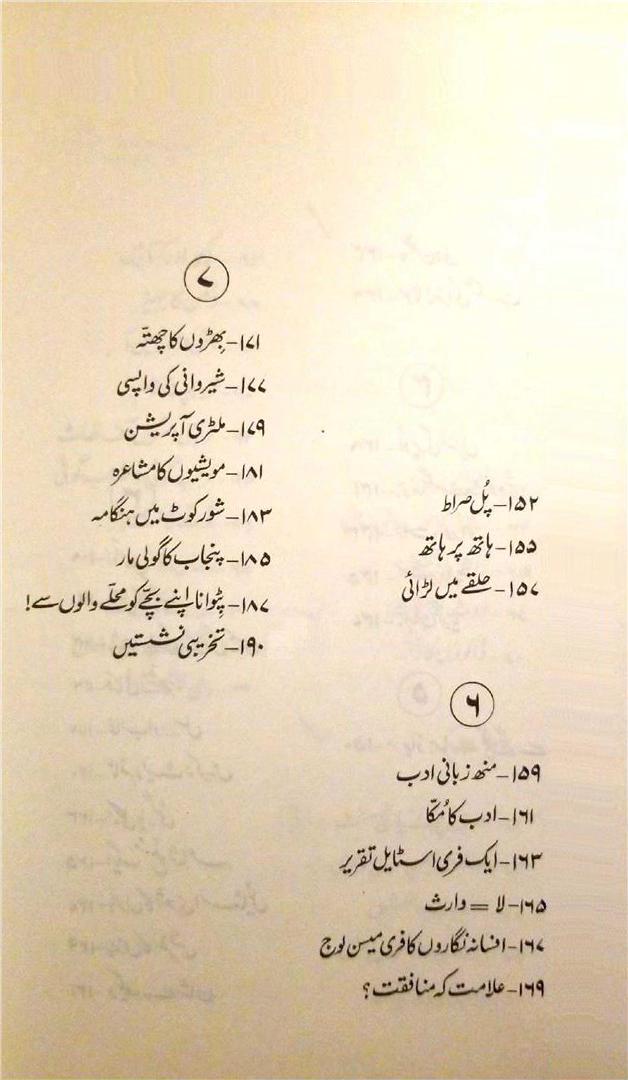 ۱۵۲-پُل صراط
۱۵۵-ہاتھ پر ہاتھ
۱۵۷-حلقے میں لڑائی
۶
۱۵۹-منھ زبانی ادب
۱۶۱-ادب کا مُکّا
۱۶۳-ایک فری اسٹایل تقریر
۱۶۵-لا = وارث
۱۶۷-افسانہ نگاروں کا فری میسن لوج
۱۶۹-علامت کہ منافقت؟
۷
۱۷۱-بِھڑوں کا چھتّہ
۱۷۷-شیروانی کی واپسی
۱۷۹-ملٹری آپریشن
۱۸۱-مویشیوں کا مشاعرہ
۱۸۳-شورکوٹ میں ہنگامہ
۱۸۵-پنجاب کا گولی مار
۱۸۷-پِٹوانا اپنے بچّے کو محلّے والوں سے!
۱۹۰-تخریبی نشستیں